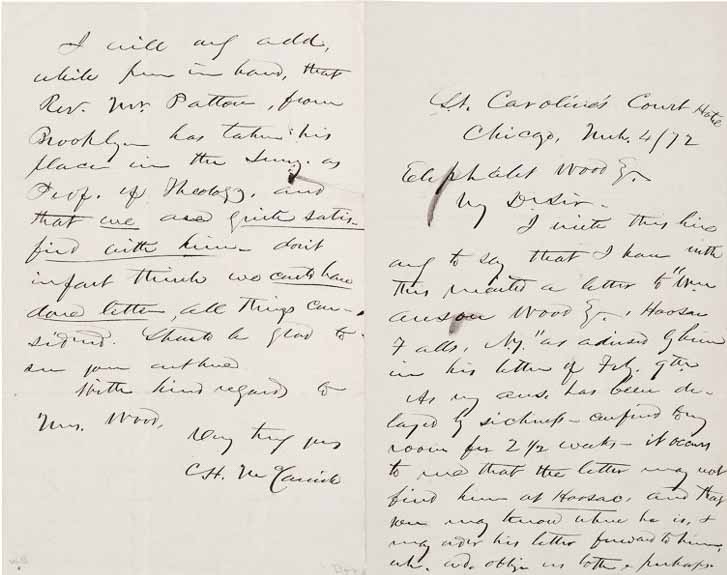 St. Caroline's Court Hotel
Chicago, Mch. 4/72
Eliphalet Wood Esq.
My Dr Sir -
I write this line
only to say that I have with
this mailed a letter to "Wm
Anson Wood Esq., Hoosac
Falls, N.y." as advised by him
in his letter of Feb. 9th
As my ans. has been de-
layed by sickness - confined to my
room for 2 1/2 weeks - it occurs
to me that the letter may not
find him at Hoosac, and that
you may know where he is, &
may order his letter forward to him,
wh. wd. oblige us both, & perhaps
I will only add,
while pen in hand, that
Rev. Mr. Patton, from
Brooklyn has taken his
place in the Semy. as
Prof. of Theology, and
that we are quite satis-
fied with him - don't
in fact think we could have
done better, all things con-
sidered. Should be glad to
see you out here
With kind regards to
Mrs. Wood,
Very truly yours
C.H. McCormick